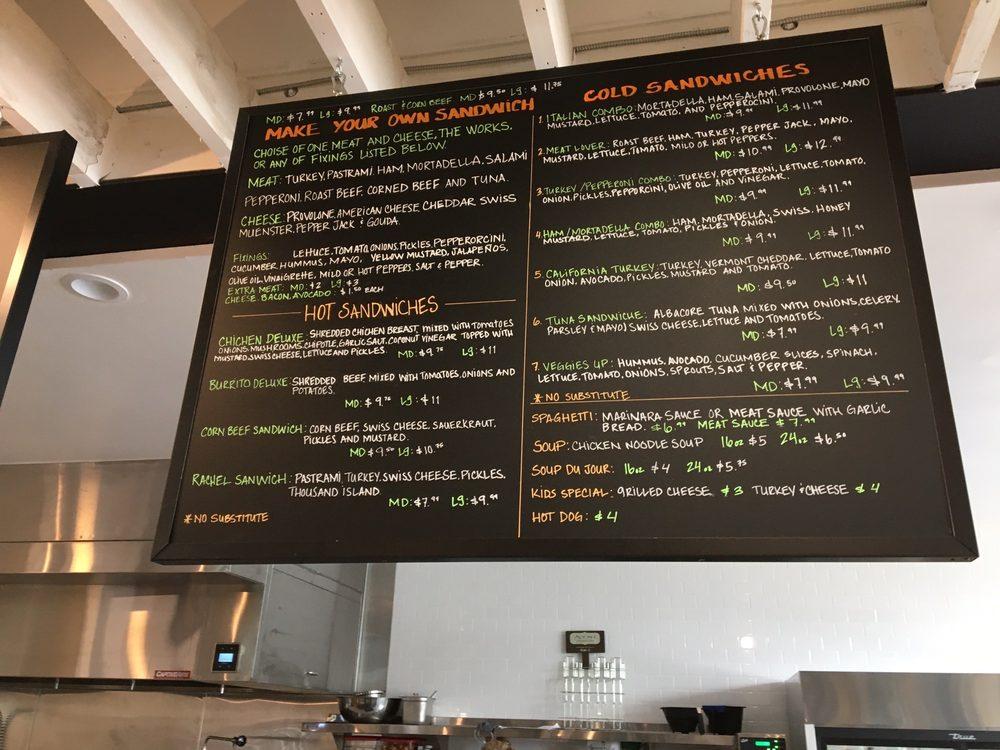 MD: $7.99 LG: $9.99 ROAST & CORN BEEF MD $9.50 LG: $11.75
MAKE YOUR OWN SANDWICH
CHOISE OF ONE MEAT AND CHEESE, THE WORKS.
OR ANY OF FIXINGS LISTED BELOW.
MEAT: TURKEY, PASTRAMI, HAM, MORTADELLA, SALAMI
PEPPERONI, ROAST BEEF, CORNED BEEF AND TUNA.
CHEESE: PROVOLONE, AMERICAN CHEESE, CHEDDAR, SWISS
MUENSTER, PEPPER JACK & GOUDA.
FIXINGS: LEHUCE, TOMATO, ONIONS, PICKLES, PEPPERORCINI,
CUCUMBER, HUMMUS, MAYO, YELLOW MUSTARD, JALAPEÑOS,
OLIVE OIL, VINAIGRETTE, MILD OR HOT PEPPERS, SALT & PEPPER.
EXTRA MEAT: MD: $2 LG: $3
CHEESE, BACON, AVOCADO: $1.50 EACH
HOT SANDWICHES
CHICHEN DELUXE: SHREDDED CHICHEN BREAST, MIXED WITH TOMATOES
ONIONS, MUSHROOMS, CHIPOTLE, GARLIC SAUT, COCONUT VINEGAR TOPPED WITH
MUSTARD, SWISS CHEESE, LETTUCE AND PICKLES. MD: $9.75 LG: $11
BURRITO DELUXE: SHREDDED BEEF MIXED WITH TOMATOES, ONIONS AND
POTATOES.
MD: $9.75 LG: $11
CORN BEEF SANDWICH: CORN BEEF, SWISS CHEESE, SAUERKRAUT,
PICKLES AND MUSTARD.
MD $9.50 LG: $10.75
RACHEL SANWICH: PASTRAMI, TURKEY, SWISS CHEESE, PICKLES,
THOUSAND ISLAND
MD: $7.99 LG: $9.99
* NO SUBSTITUTE
COLD SANDWICHES
1. ITALIAN COMBO: MORTADELLA, HAM, SALAMI, PROVOLONE, MAYO
MUSTARD, LETTUCE, TOMATO, AND PEPPEROCINI
MD: $9.99 LG: $11.99
2. MEAT LOVER: ROAST BEEF, HAM, TURKEY, PEPPER JACK, MAYO,
MUSTARD, LETTUCE, TOMATO, MILD OR HOT PEPPERS.
MD: $10.99 LG: $12.99
3. TURKEY/PEPPERONI COMBO: TURKEY, PEPPERONI, LETTUCE, TOMATO,
ONION, PICKLES, PEPPORCINI, OLIVE OIL AND VINEGAR.
MD: $9.99 LG: $11.99
4. HAM/MORTADELLA COMBO: HAM, MORTADELLA, SWISS, HONEY
MUSTARD, LETTUCE, TOMATO, PICKLES & ONION.
MD: $9.99 LG: $11.99
5. CALIFORNIA TURKEY: TURKEY, VERMONT CHEDDAR, LETTUCE, TOMATO
ONION, AVOCADO, PICKLES, MUSTARD AND TOMATO.
MD: $9.50 LG: $11
6. TUNA SANDWICHE: ALBACORE TUNA MIXED WITH ONIONS, CELERY,
PARSLEY & MAYO) SWISS CHEESE, LETTUCE AND TOMATOES.
MD: $7.99 LG: $9.99
7. VEGGIES UP: HUMMUS, AVOCADO, CUCUMBER SLICES, SPINACH,
LETTUCE, TOMATO, ONIONS, SPROUTS, SALT & PEPPER.
* NO SUBSTITUTE MD: $7.99 LG: $9.99
SPAGHETTI: MARINARA SAUCE OR MEAT SAUCE WITH GARLIC
BREAD. $6.99 MEAT SAUCE $7.99
SOUP: CHICKEN NOODLE SOUP 16oz $5 24oz $6.50
SOUP DU JOUR: 16oz $4 24oz $5.75
KIDS SPECIAL: GRILLED CHEESE $3 TURKEY & CHEESE $4
HOT DOG: $4
CAPTIVEAIRE
True